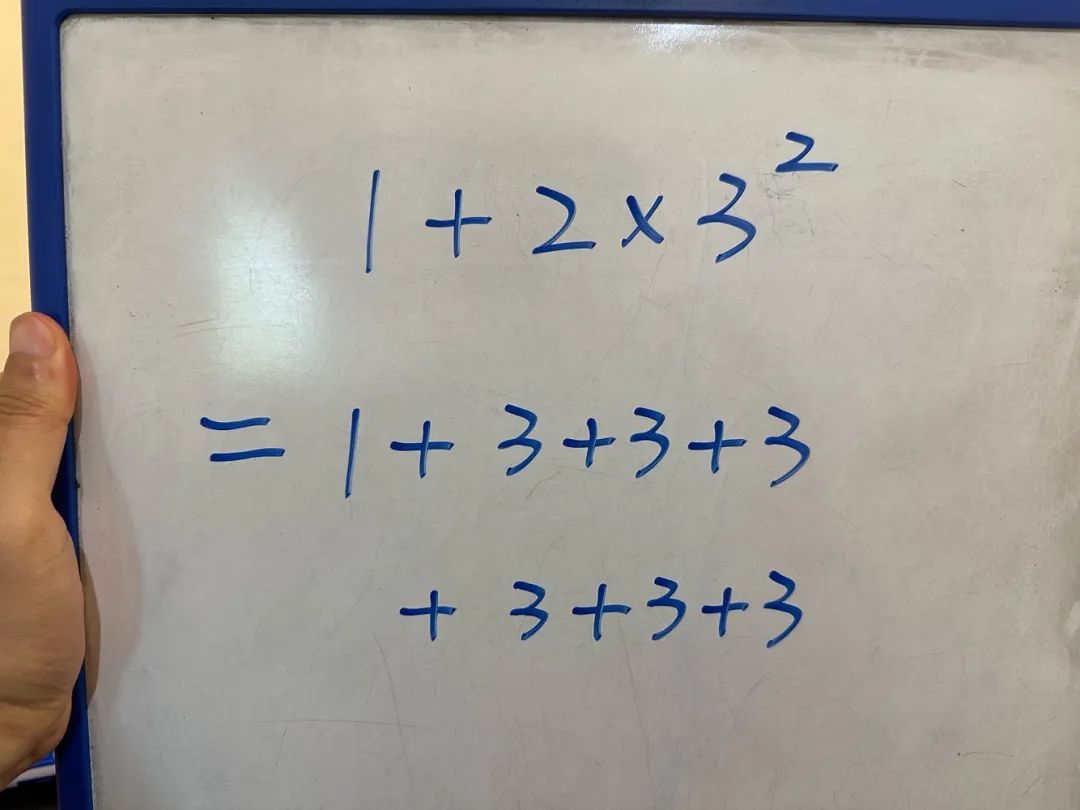 1 + 2 × 3²
= 1 + 3 + 3 + 3
+ 3 + 3 + 3